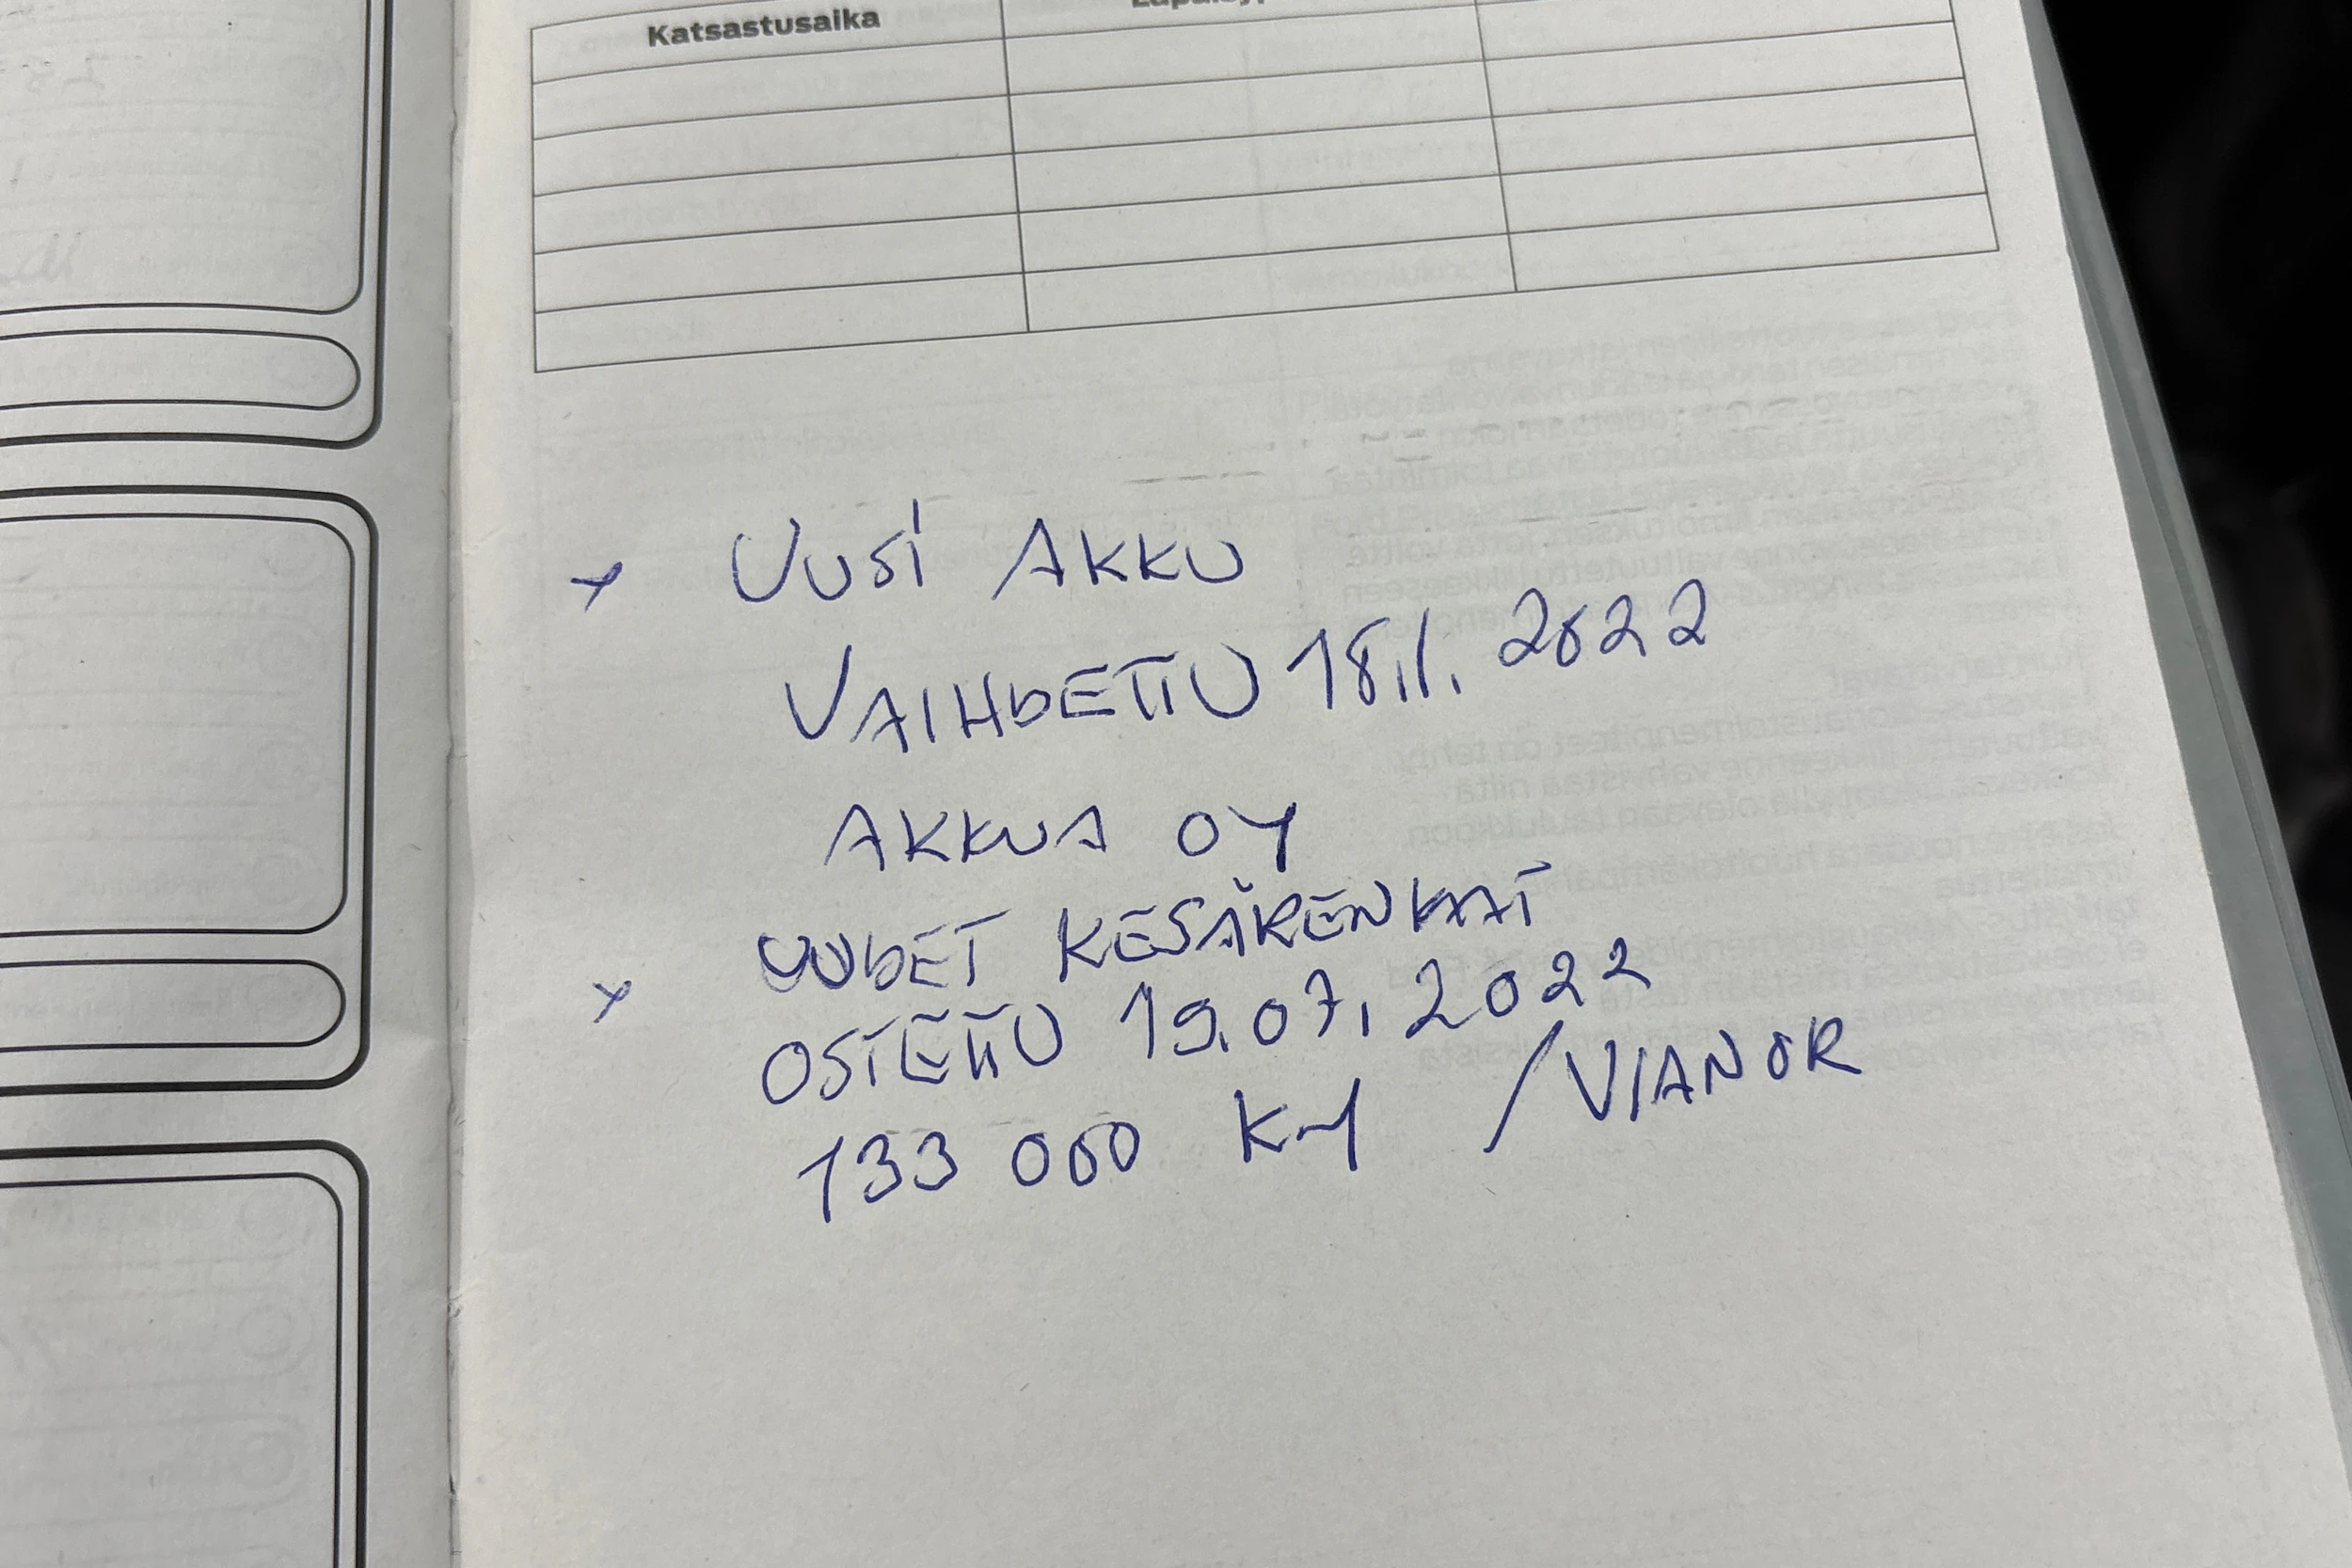 Katsastusaika
x UUSI AKKU
VAIHDETTU 18.1. 2022
AKKUA OY
x UUDET KESÄRENKAAT
OSTETTU 19.07.2022
133 000 KM /VIANOR